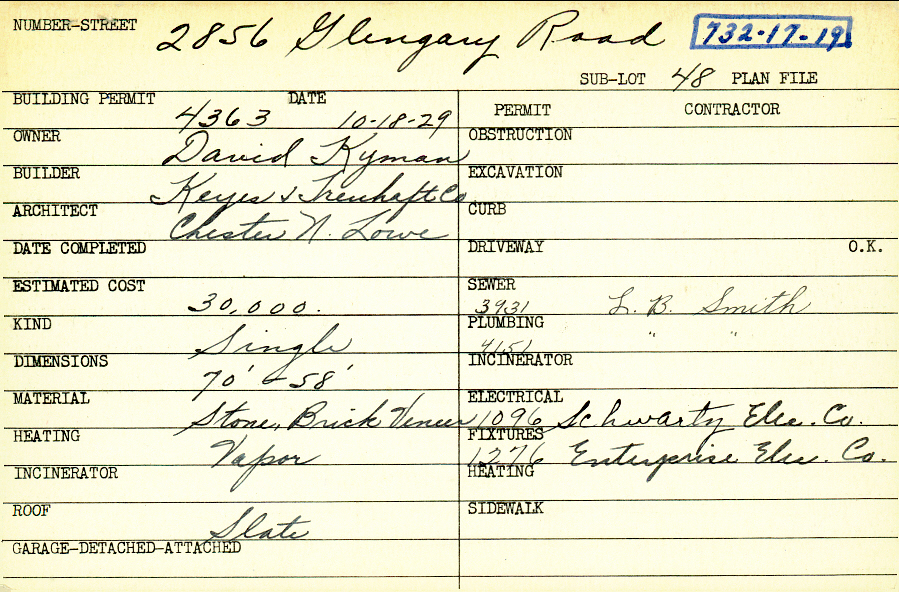 NUMBER-STREET 2856 Glengary Road 732-17-19
SUB-LOT 48 PLAN FILE
BUILDING PERMIT 4363 DATE 10-18-29
OWNER David Kyman
BUILDER Keyes & Treuhaft Co
ARCHITECT Chester N. Lowe
DATE COMPLETED
ESTIMATED COST 30,000.
KIND Single
DIMENSIONS 70' - 58'
MATERIAL Stone, Brick Veneer
HEATING Vapor
INCINERATOR
ROOF Slate
GARAGE-DETACHED-ATTACHED
PERMIT CONTRACTOR
OBSTRUCTION
EXCAVATION
CURB
DRIVEWAY O.K.
SEWER 3931 L. B. Smith
PLUMBING 4151 " "
INCINERATOR
ELECTRICAL 1096 Schwartz Elec. Co.
FIXTURES 1276 Enterprise Elec. Co.
HEATING
SIDEWALK